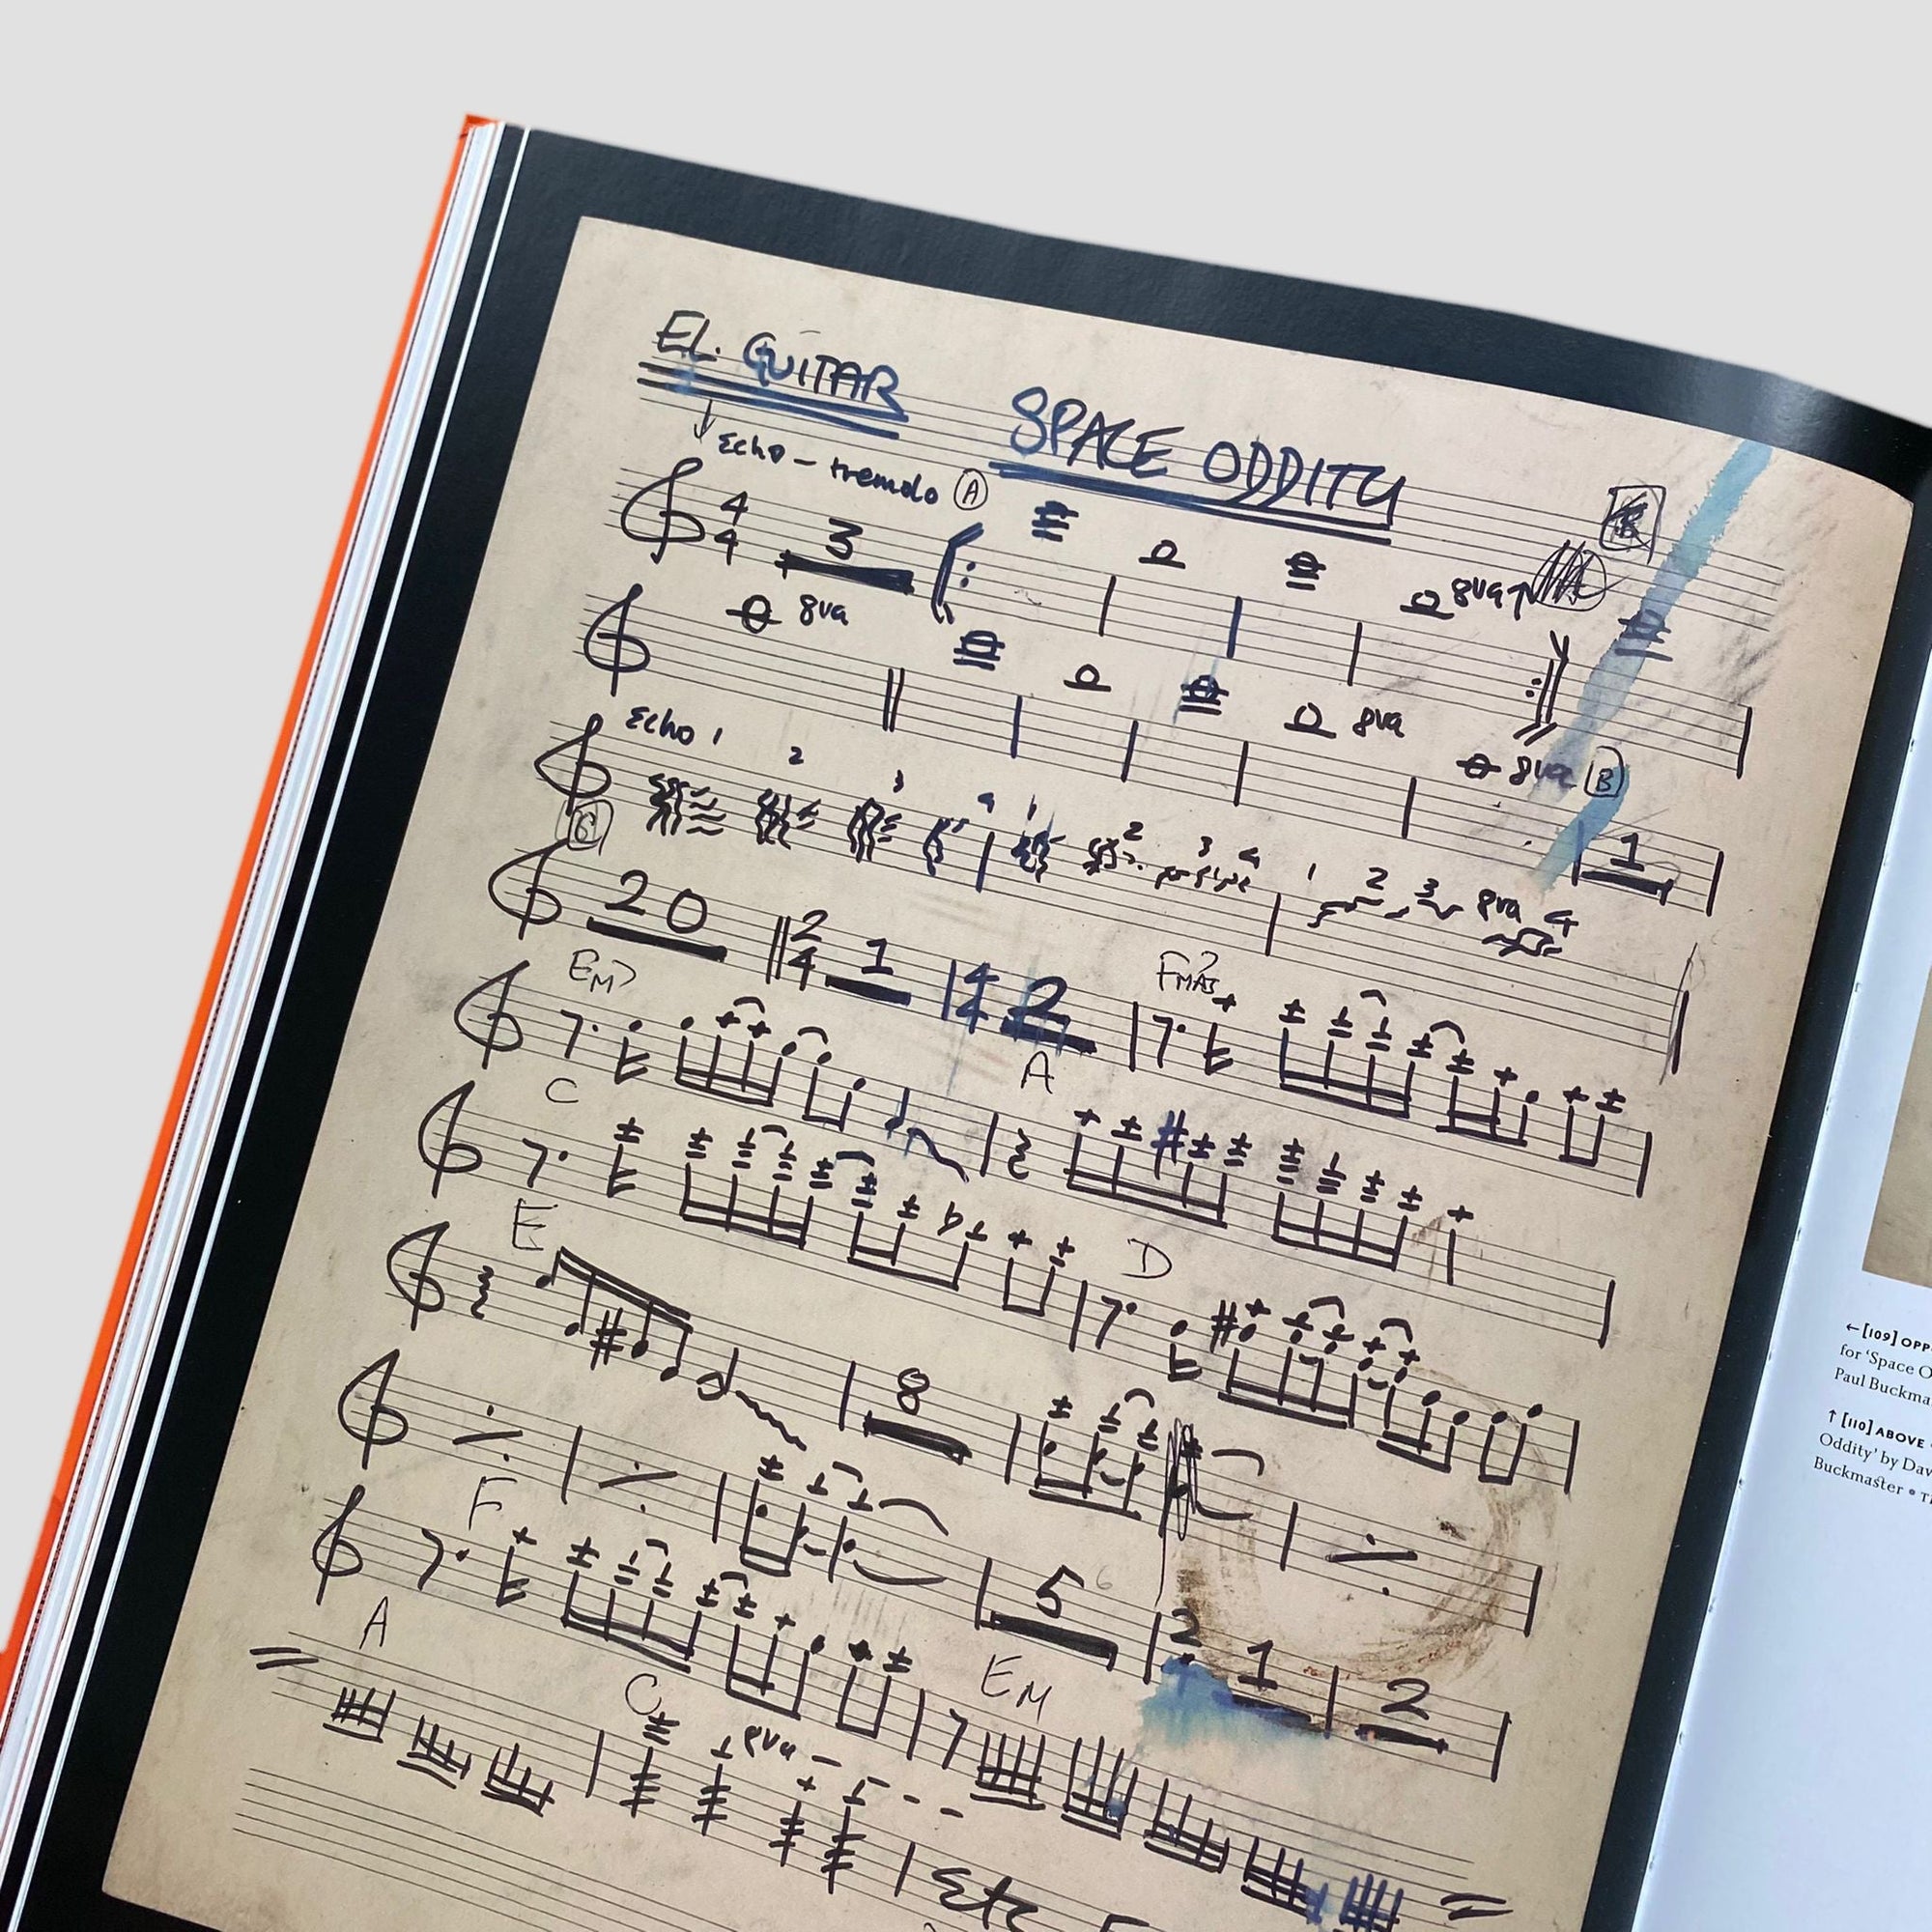 EL. GUITAR SPACE ODDITY
Echo - tremolo A
4 4 3
8va↑
8va
8va
8va B
1
Echo 1 2 3 4 1 2 3 4 1 2 3 8va 4
20 2 4 1 4 4 2
FMAJ7
EM7 A
C D
E 8
5 2 1 2
F EM
A C 8va - - -
Etc
←[109] OPP
for ‘Space O
Paul Buckma
↑[110] ABOVE
Oddity’ by Dav
Buckmaster •